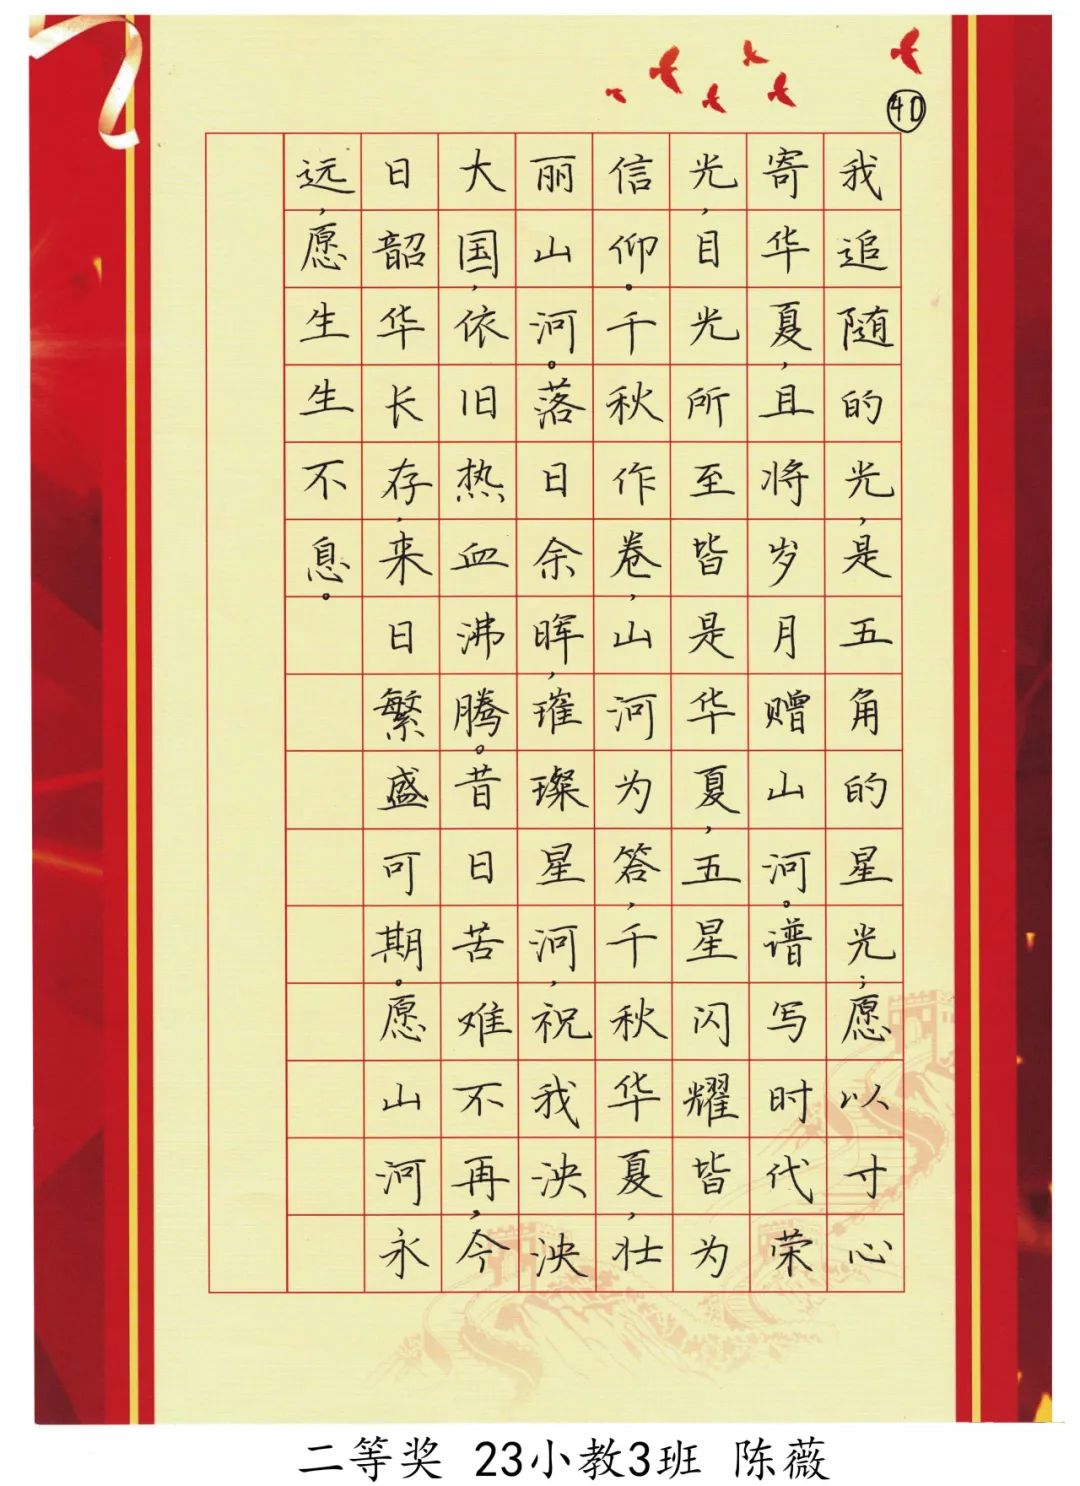 40
我追随的光，是五角的星光；愿以寸心
寄华夏，且将岁月赠山河。谱写时代荣
光，目光所至皆是华夏，五星闪耀皆为
信仰。千秋作卷，山河为答，千秋华夏，壮
丽山河。落日余晖，璀璨星河，祝我泱泱
大国，依旧热血沸腾。昔日苦难不再，今
日韶华长存，来日繁盛可期。愿山河永
远，愿生生不息。
二等奖 23小教3班 陈薇